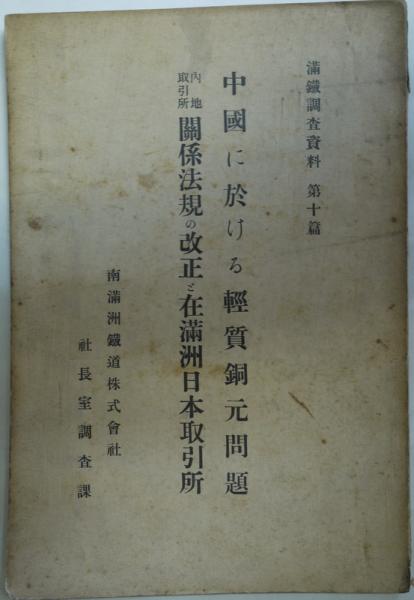 滿鐵調査資料 第十篇
中國に於ける輕質銅元問題
內地取引所關係法規の改正と在滿洲日本取引所
南滿洲鐵道株式會社
社長室調査課